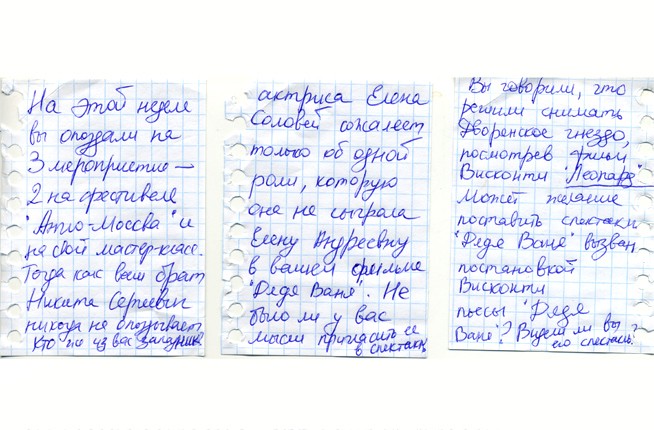 На этой неделе
вы опоздали на
3 мероприятие —
2 на фестивале
"Арто-Москва" и
на свой мастер-класс.
Тогда как ваш брат
Никита Сергеевич
никогда не опаздывает
Кто же из вас западник?
актриса Елена
Соловей сожалеет
только об одной
роли, которую
она не сыграла
Елену Андреевну
в вашем фильме
"Дядя Ваня". Не
было ли у вас
мысли пригласить её
в спектакль
Вы говорили, что
решили снимать
Дворянское гнездо,
посмотрев фильм
Висконти "Леопард"
Может желание
поставить спектакль
"Дядя Ваня" вызван
постановкой
Висконти
пьесы "Дядя
Ваня"? Видели ли вы
его спектакль?